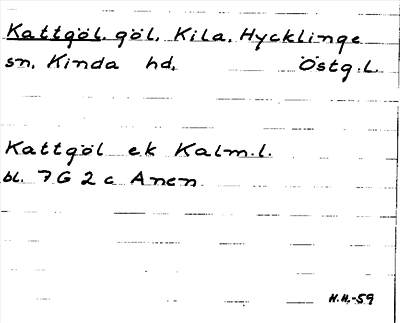 Kattgöl, göl, Kila, Hycklinge
sn, Kinda hd, Östg.L.
Kattgöl ek Kalm.l.
bl. 7G 2c Anen
H.H.-59